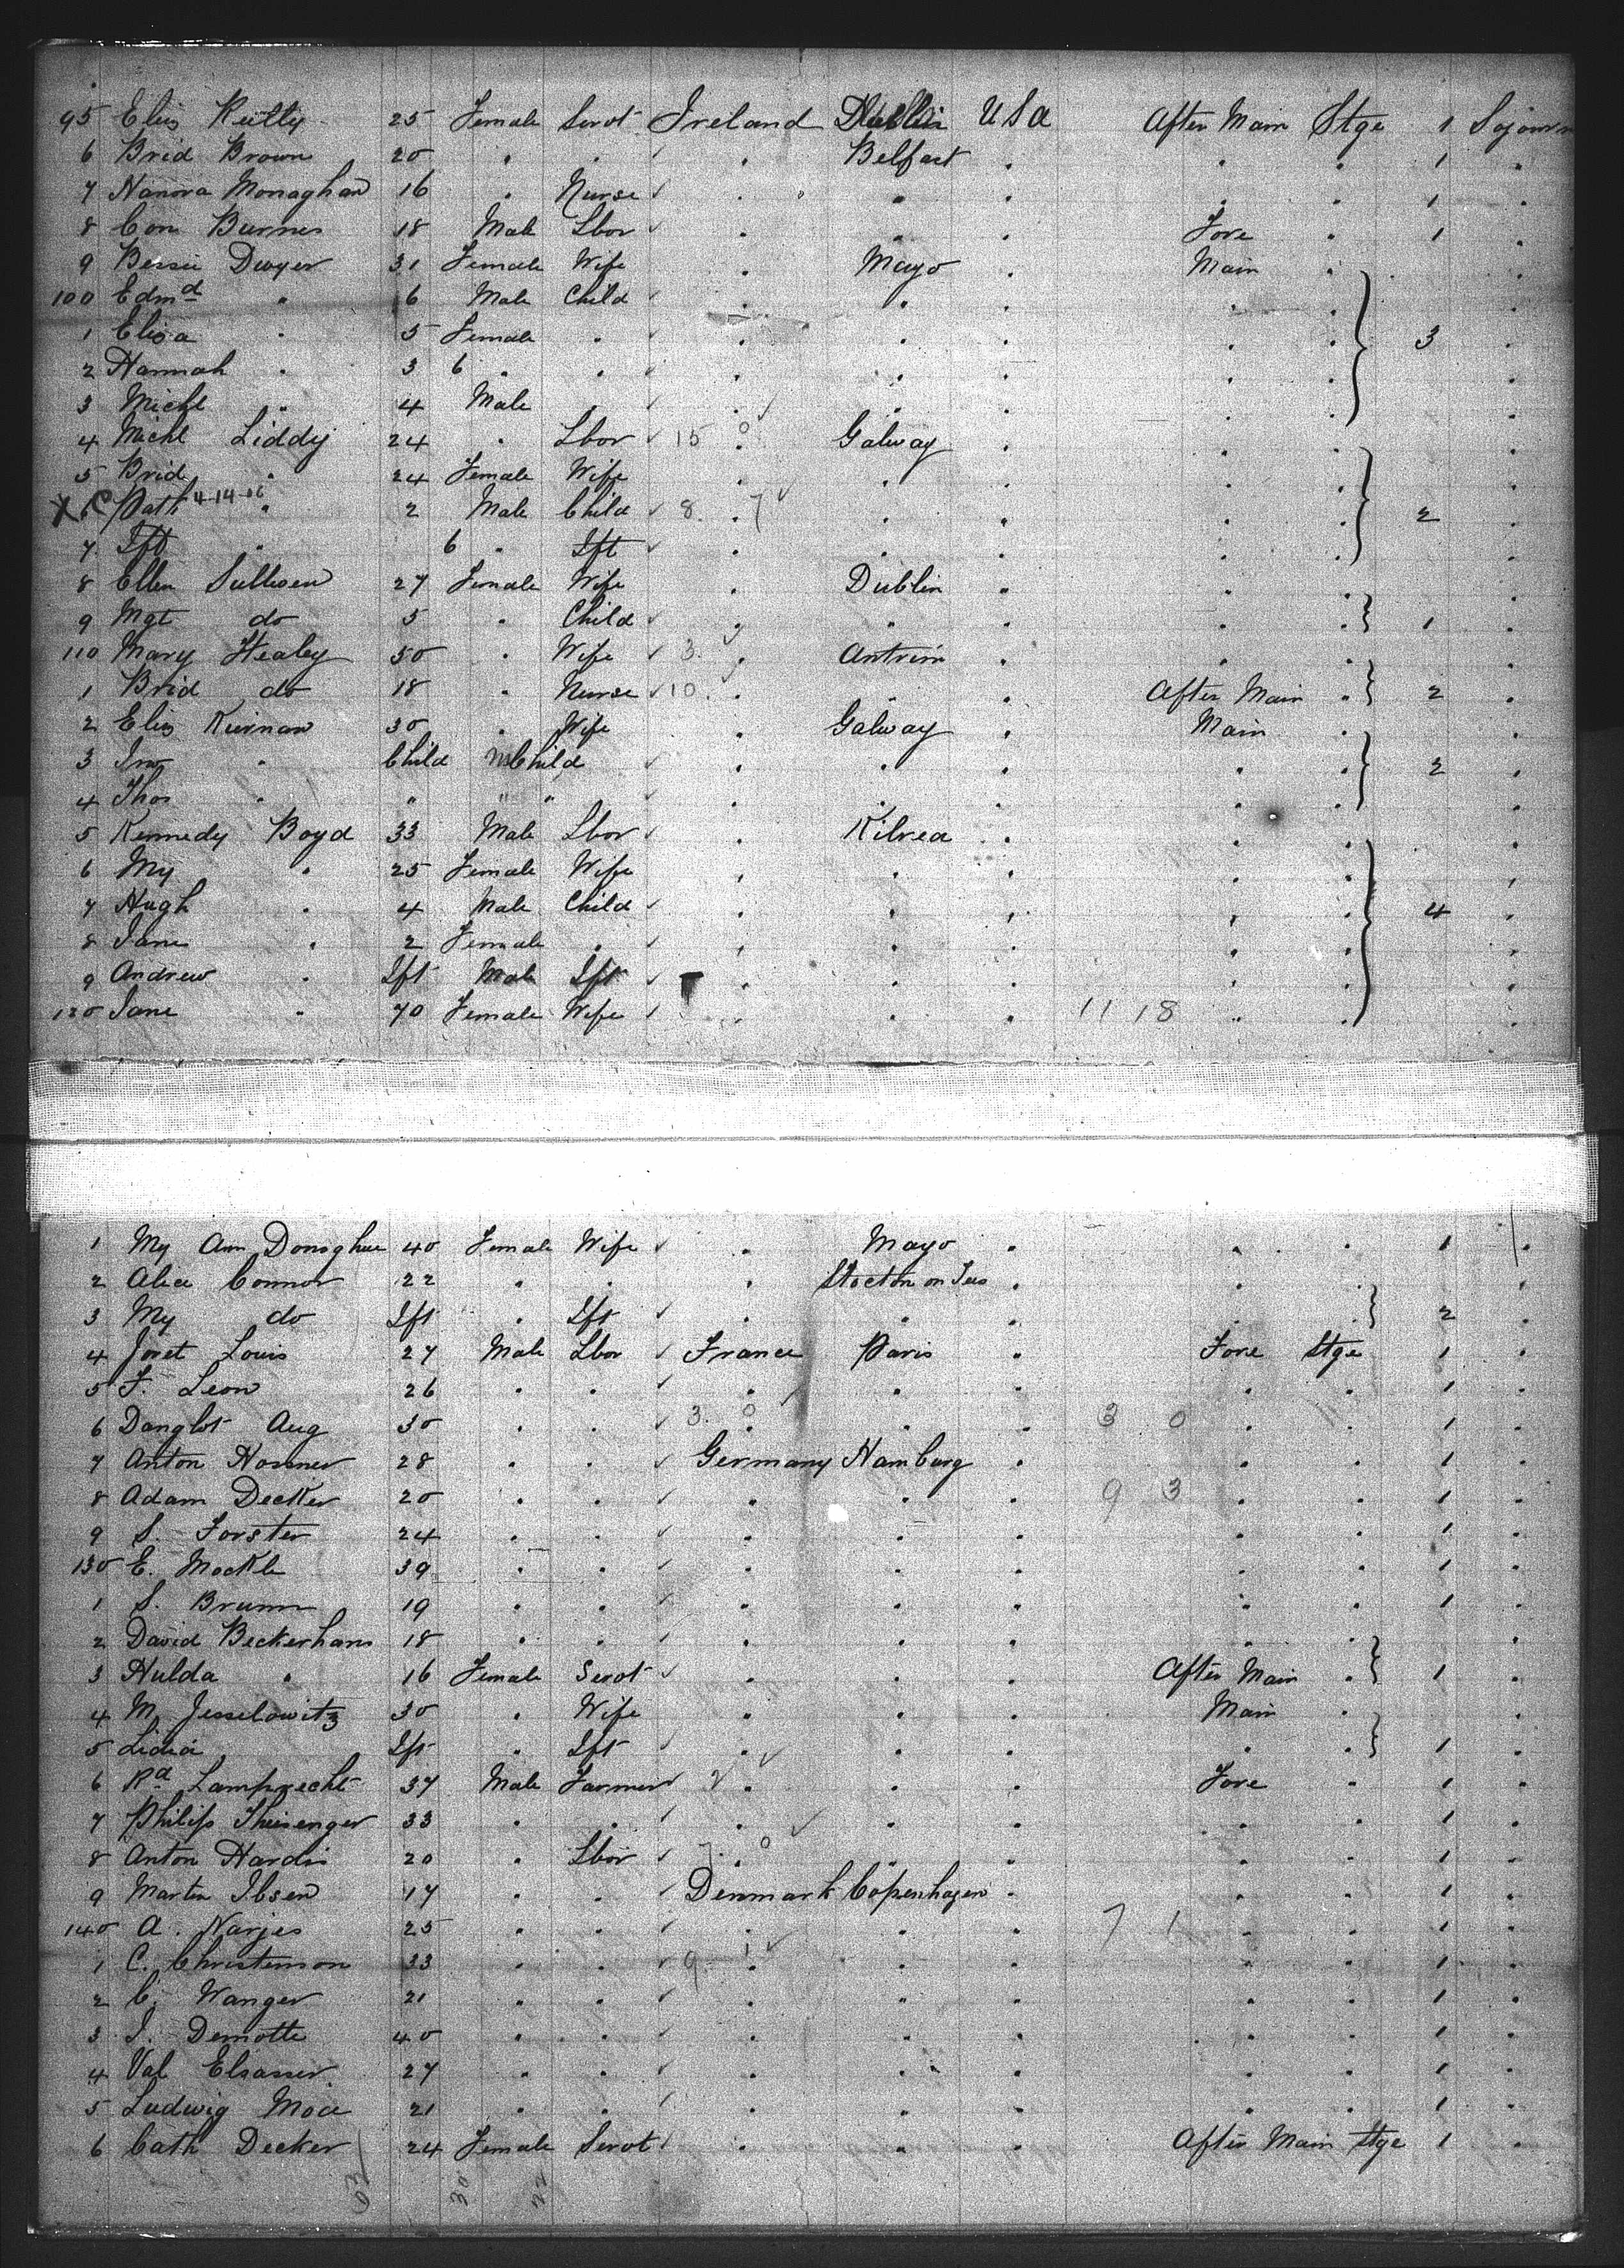 95 Eliz Reilly 25 Female Servt Ireland Dublin USA After Main Stge 1 Sojourn
6 Brid Brown 20 " " " Belfast " " " 1 "
7 Hanora Monaghan 16 " Nurse " " " " " 1 "
8 Con Burnes 18 Male Lbor " " " Fore " 1 "
9 Bessie Dwyer 31 Female Wife " Mayo " Main "
100 Edmd " 6 Male Child " " " " " "
1 Eliza " 5 Female " " " " " " 3 "
2 Hannah " 3 6 " " " " " " " "
3 Michl " 4 Male " " " " " " "
4 Michl Liddy 24 " Lbor 15 0 " Galway " " " "
5 Brid " 24 Female Wife " " " " " "
X C 6 Path 4-14-06 " 2 Male Child 8 7 " " " " " 2 "
7 Ift " 6 " Ift " " " " " "
8 Ellen Sullivan 27 Female Wife " Dublin " " " "
9 Mgt do 5 " Child " " " " " 1 "
110 Mary Healey 50 " Wife 3 " Antrim " " " "
1 Brid do 18 " Nurse 10 " " " After Main " 2 "
2 Eliz Kiernan 30 " Wife " Galway " Main " "
3 Jno " Child M Child " " " " " 2 "
4 Thos " " " " " " " " " "
5 Kennedy Boyd 33 Male Lbor " Kilrea " " " "
6 My " 25 Female Wife " " " " " "
7 Hugh " 4 Male Child " " " " " 4 "
8 Jane " 2 Female " " " " " " "
9 Andrew " Ift Male Ift " " " " " "
120 Jane " 70 Female Wife " " " 11 18 " " "
1 My Ann Donoghue 40 Female Wife " Mayo " " " 1 "
2 Alice Connor 22 " " " Stocton on Tees " " " "
3 My do Ift " Ift " " " " " 2 "
4 Joret Louis 27 Male Lbor France Paris " Fore Stge 1 "
5 F. Leon 26 " " " " " " " 1 "
6 Danglot Aug 30 " " 3 0 " " " 3 0 " " 1 "
7 Anton Hosner 28 " " Germany Hamburg " " " 1 "
8 Adam Decker 20 " " " " " 9 3 " " 1 "
9 S. Forster 24 " " " " " " " 1 "
130 E. Mockle 39 " " " " " " " 1 "
1 S. Brunn 19 " " " " " " " 1 "
2 David Beckerhans 18 " " " " " " " "
3 Hulda " 16 Female Servt " " " After Main " 1 "
4 M. Jesselowitz 30 " Wife " " " Main " "
5 Lidia Ift " Ift " " " " " 1 "
6 Rd Lamprecht 37 Male Farmer 2 " " " Fore " 1 "
7 Philip Theisenger 33 " " " " " " " 1 "
8 Anton Hardis 20 " Lbor 7 0 " " " " " 1 "
9 Martin Ibsen 17 " " Denmark Copenhagen " " " 1 "
140 A. Narjes 25 " " " " " 7 1 " " 1 "
1 C. Christenson 33 " " 9 1 " " " " " 1 "
2 C. Wanger 21 " " " " " " " 1 "
3 J. Demotte 40 " " " " " " " 1 "
4 Val Elsasser 27 " " " " " " " 1 "
5 Ludwig Moll 21 " " " " " " " 1 "
6 Cath Decker 24 Female Servt " " " After Main Stge 1 "
63 30 22